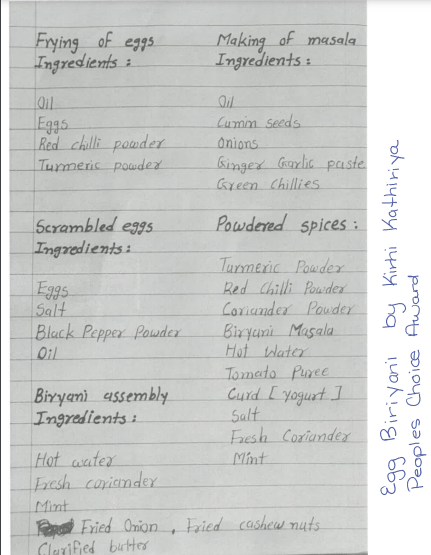 Frying of eggs
Ingredients :
Oil
Eggs
Red chilli powder
Turmeric powder
Scrambled eggs
Ingredients :
Eggs
Salt
Black Pepper Powder
Oil
Biryani assembly
Ingredients :
Hot water
Fresh coriander
Mint
Fried Onion , Fried cashewnuts
Clarified butter
Making of masala
Ingredients :
Oil
Cumin seeds
Onions
Ginger Garlic paste
Green chillies
Powdered spices :
Turmeric Powder
Red Chilli Powder
Coriander Powder
Biryani Masala
Hot Water
Tomato Puree
Curd [ yogurt ]
Salt
Fresh Coriander
Mint
Egg Biriyani by Kirhi Kathiriya
Peoples Choice Award